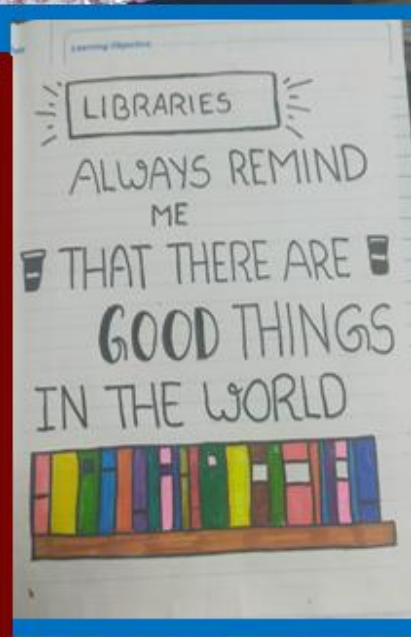 Learning Objective
LIBRARIES
ALWAYS REMIND
ME
THAT THERE ARE
GOOD THINGS
IN THE WORLD